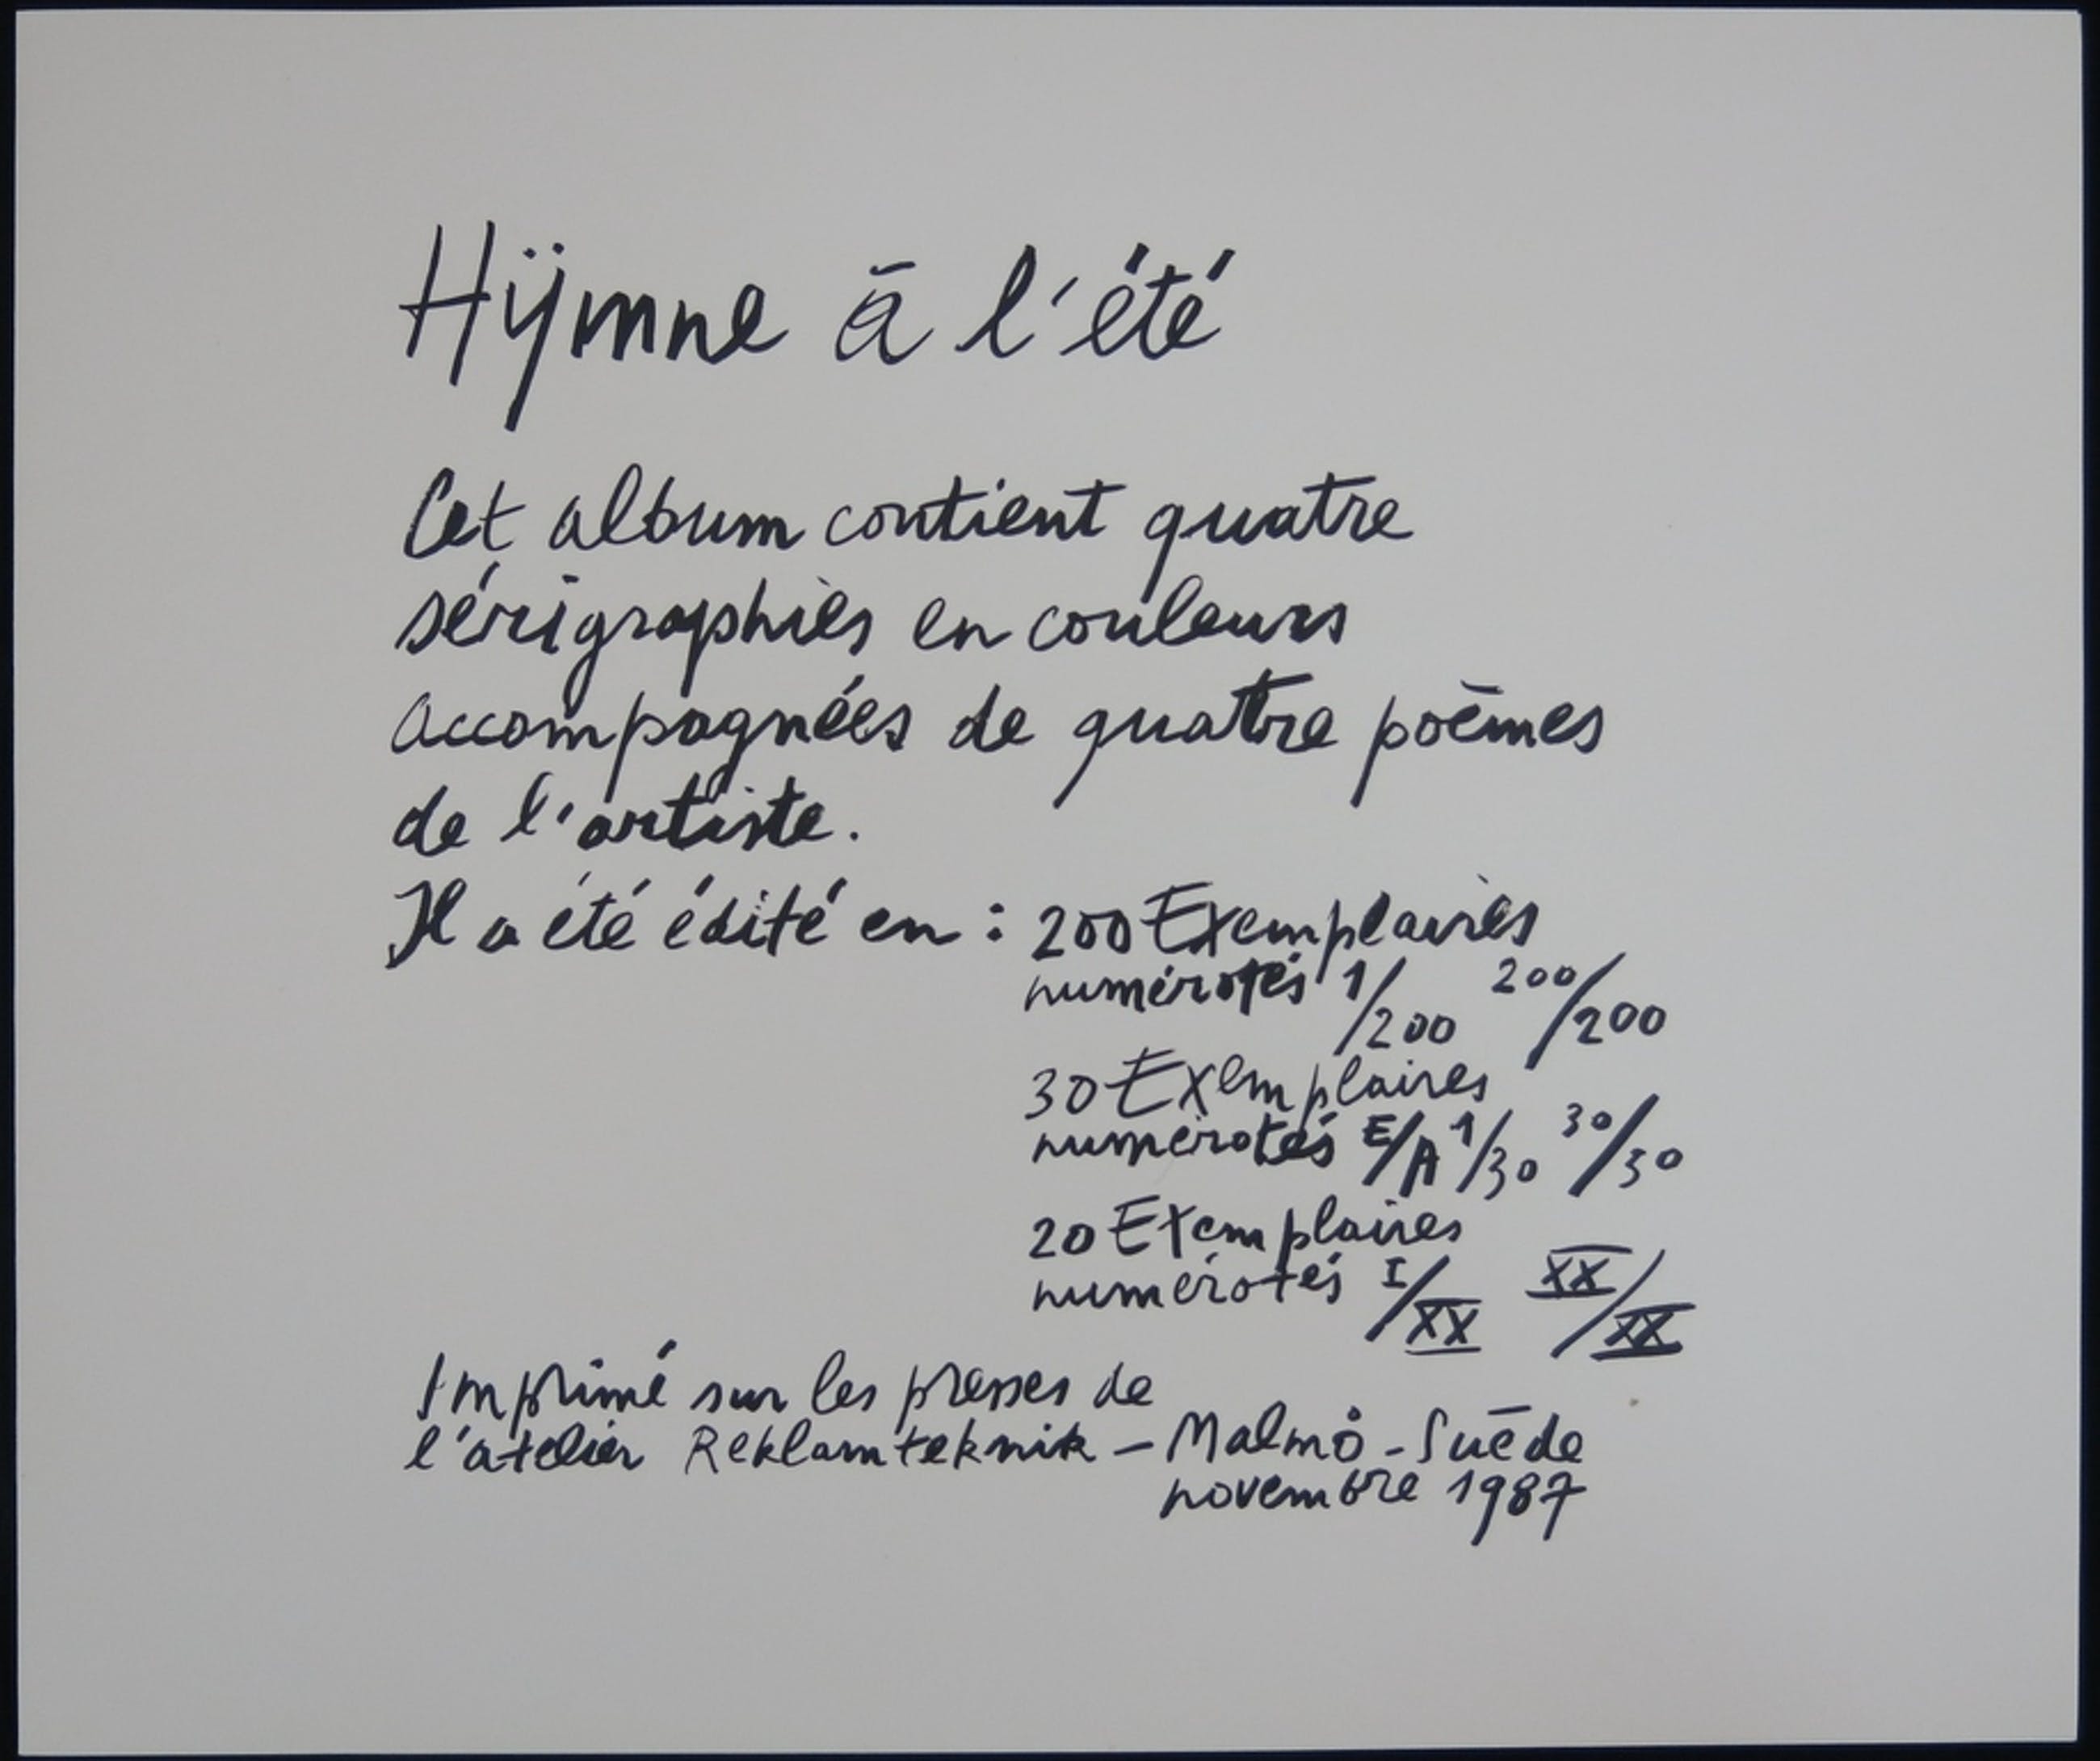 Hÿmne à l'été
Cet album contient quatre
sérigraphies en couleurs
accompagnées de quatre poèmes
de l'artiste.
Il a été édité en : 200 Exemplaires
numérotés 1/200 200/200
30 Exemplaires
numérotés E/A 1/30 30/30
20 Exemplaires
numérotés I/XX XX/XX
Imprimé sur les presses de
l'atelier Reklamteknik – Malmö - Suède
novembre 1987